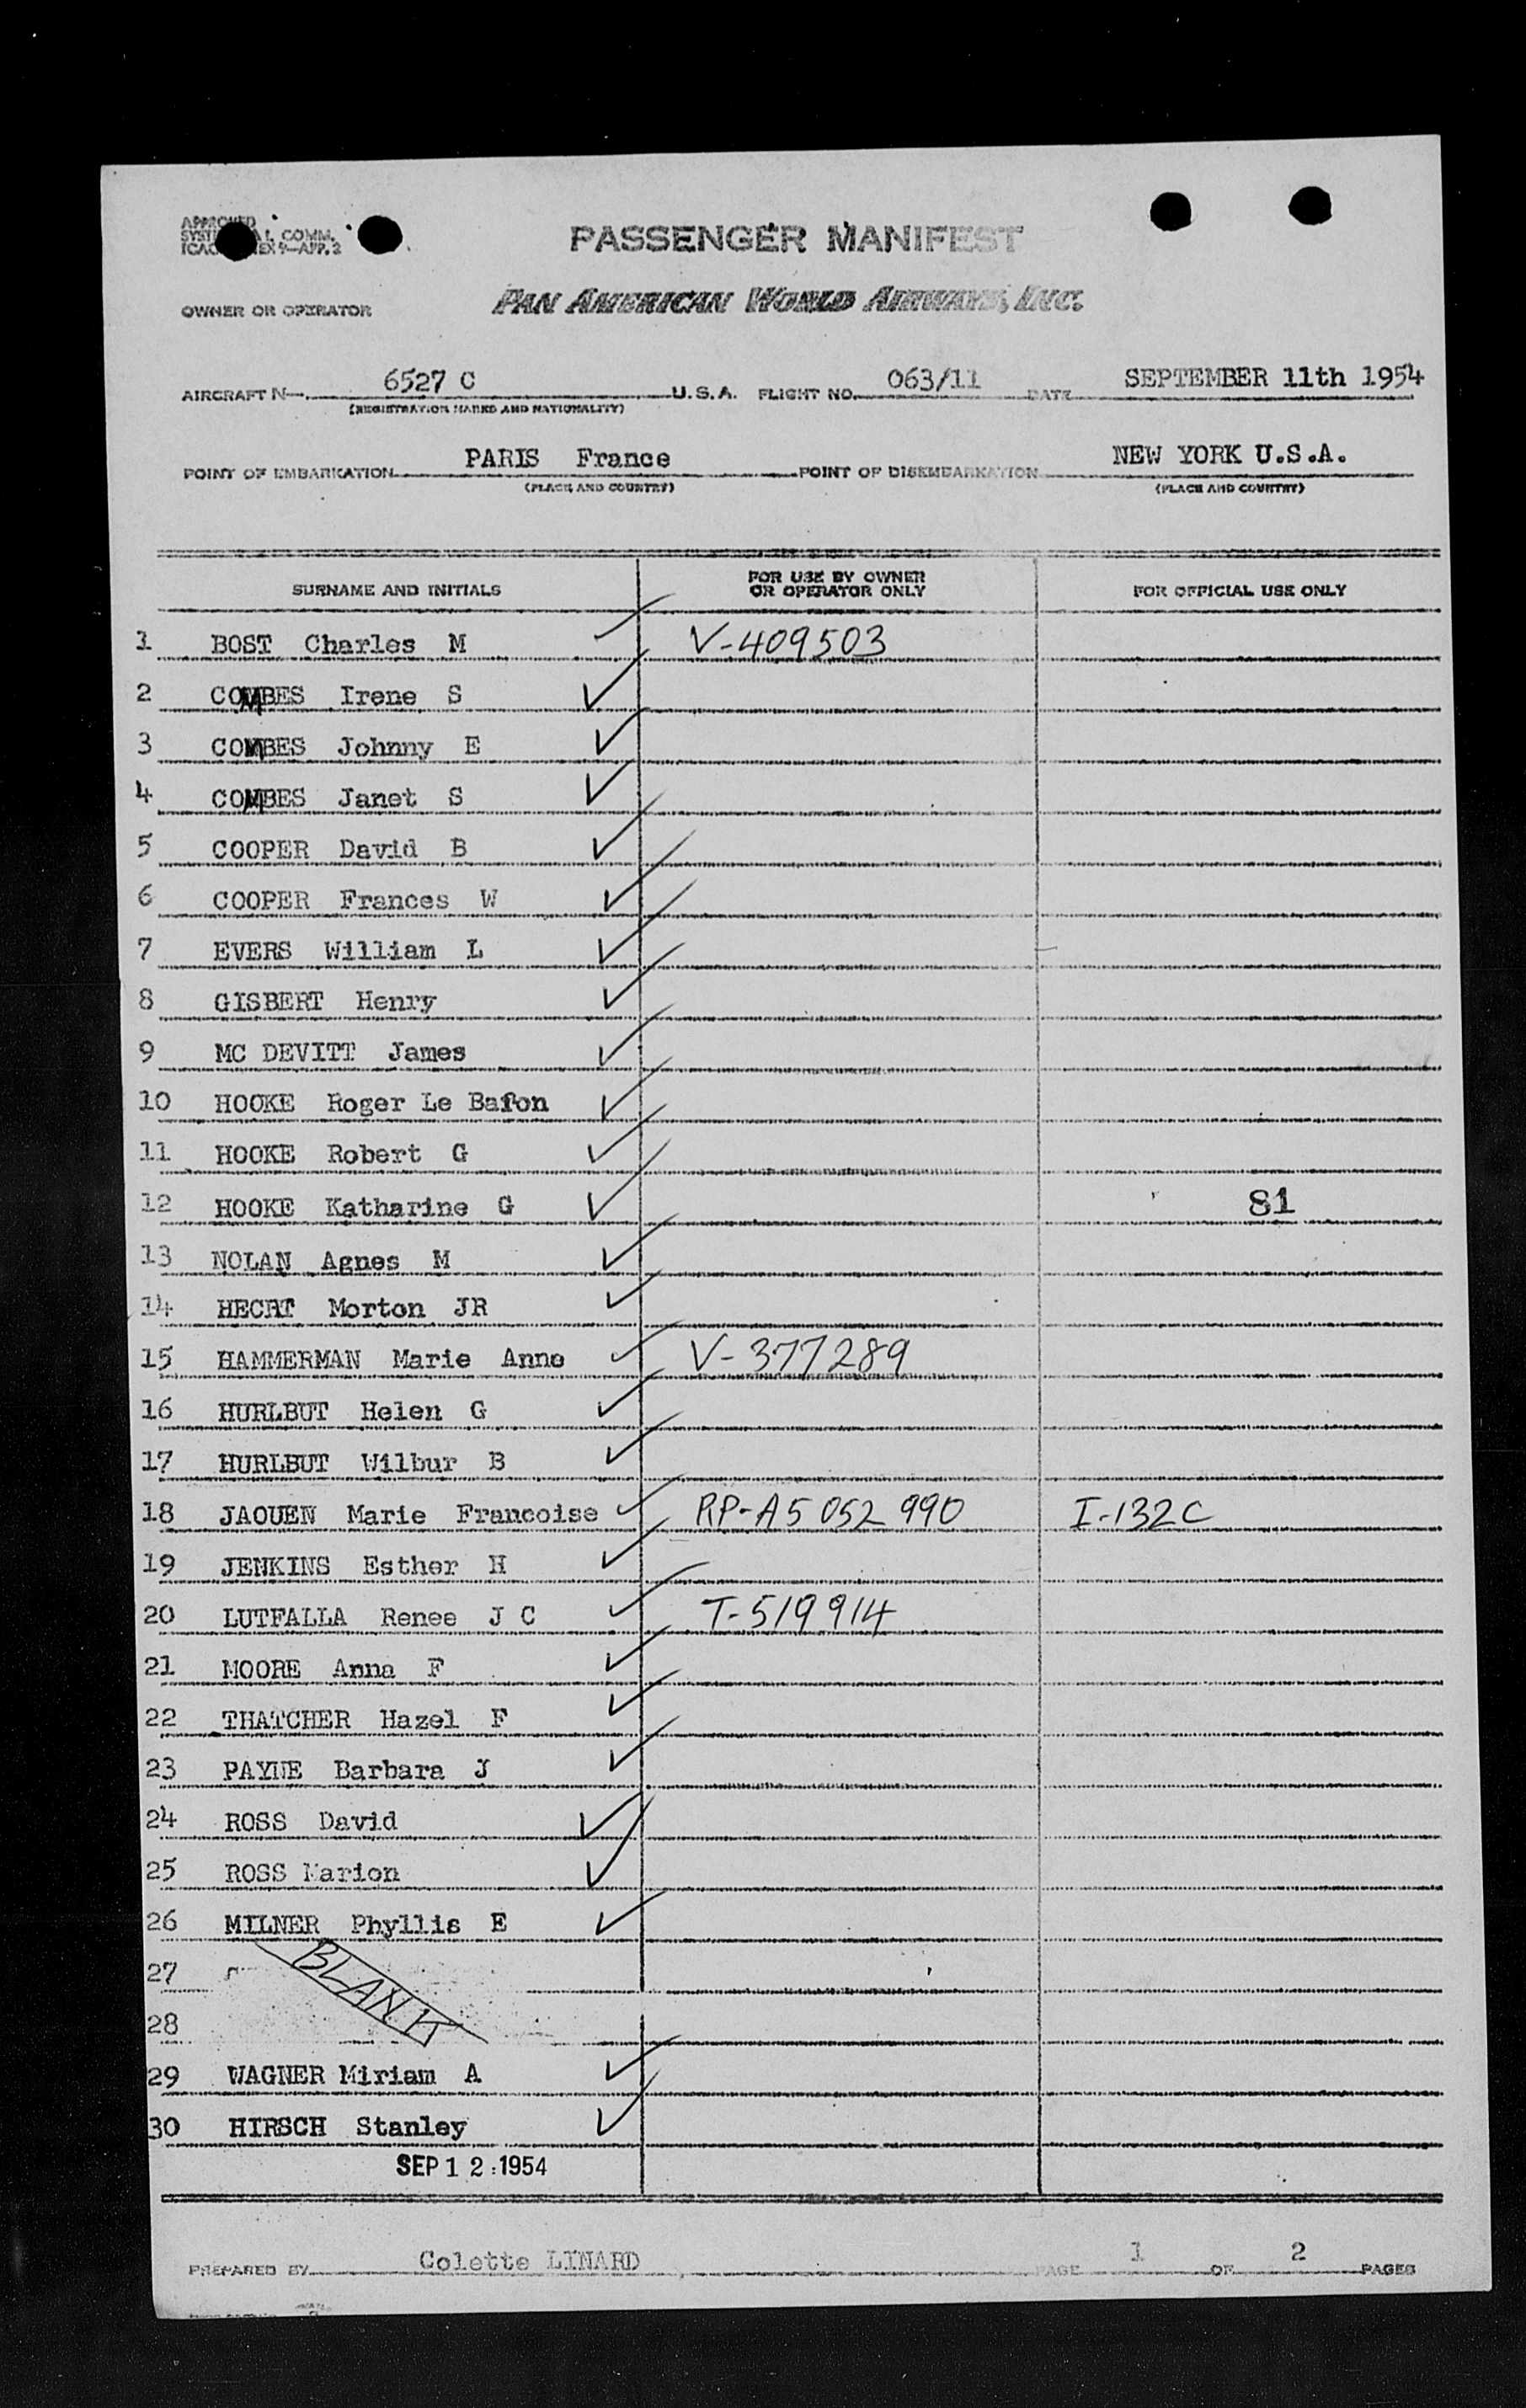 APPROVED
SYST AL COMM.
ICAO EX 9—APP. 2
PASSENGER MANIFEST
OWNER OR OPERATOR PAN AMERICAN WORLD AIRWAYS, INC.
AIRCRAFT N— 6527 C U.S.A. FLIGHT NO. 063/11 DATE SEPTEMBER 11th 1954
(REGISTRATION MARKS AND NATIONALITY)
POINT OF EMBARKATION PARIS France POINT OF DISEMBARKATION NEW YORK U.S.A.
(PLACE AND COUNTRY) (PLACE AND COUNTRY)
SURNAME AND INITIALS FOR USE BY OWNER OR OPERATOR ONLY FOR OFFICIAL USE ONLY
1 BOST Charles M V-409503
2 COMBES Irene S
3 COMBES Johnny E
4 COMBES Janet S
5 COOPER David B
6 COOPER Frances W
7 EVERS William L
8 GISBERT Henry
9 MC DEVITT James
10 HOOKE Roger Le Baron
11 HOOKE Robert G
12 HOOKE Katharine G 81
13 NOLAN Agnes M
14 HECHT Morton JR
15 HAMMERMAN Marie Anne V-377289
16 HURLBUT Helen G
17 HURLBUT Wilbur B
18 JAOUEN Marie Francoise RP-A5 052 990 I-132C
19 JENKINS Esther H
20 LUTFALLA Renee J C T-519914
21 MOORE Anna F
22 THATCHER Hazel F
23 PAYNE Barbara J
24 ROSS David
25 ROSS Marion
26 MILNER Phyllis E
27 BLANK
28
29 WAGNER Miriam A
30 HIRSCH Stanley
SEP 12 1954
PREPARED BY Colette LINARD PAGE 1 OF 2 PAGES